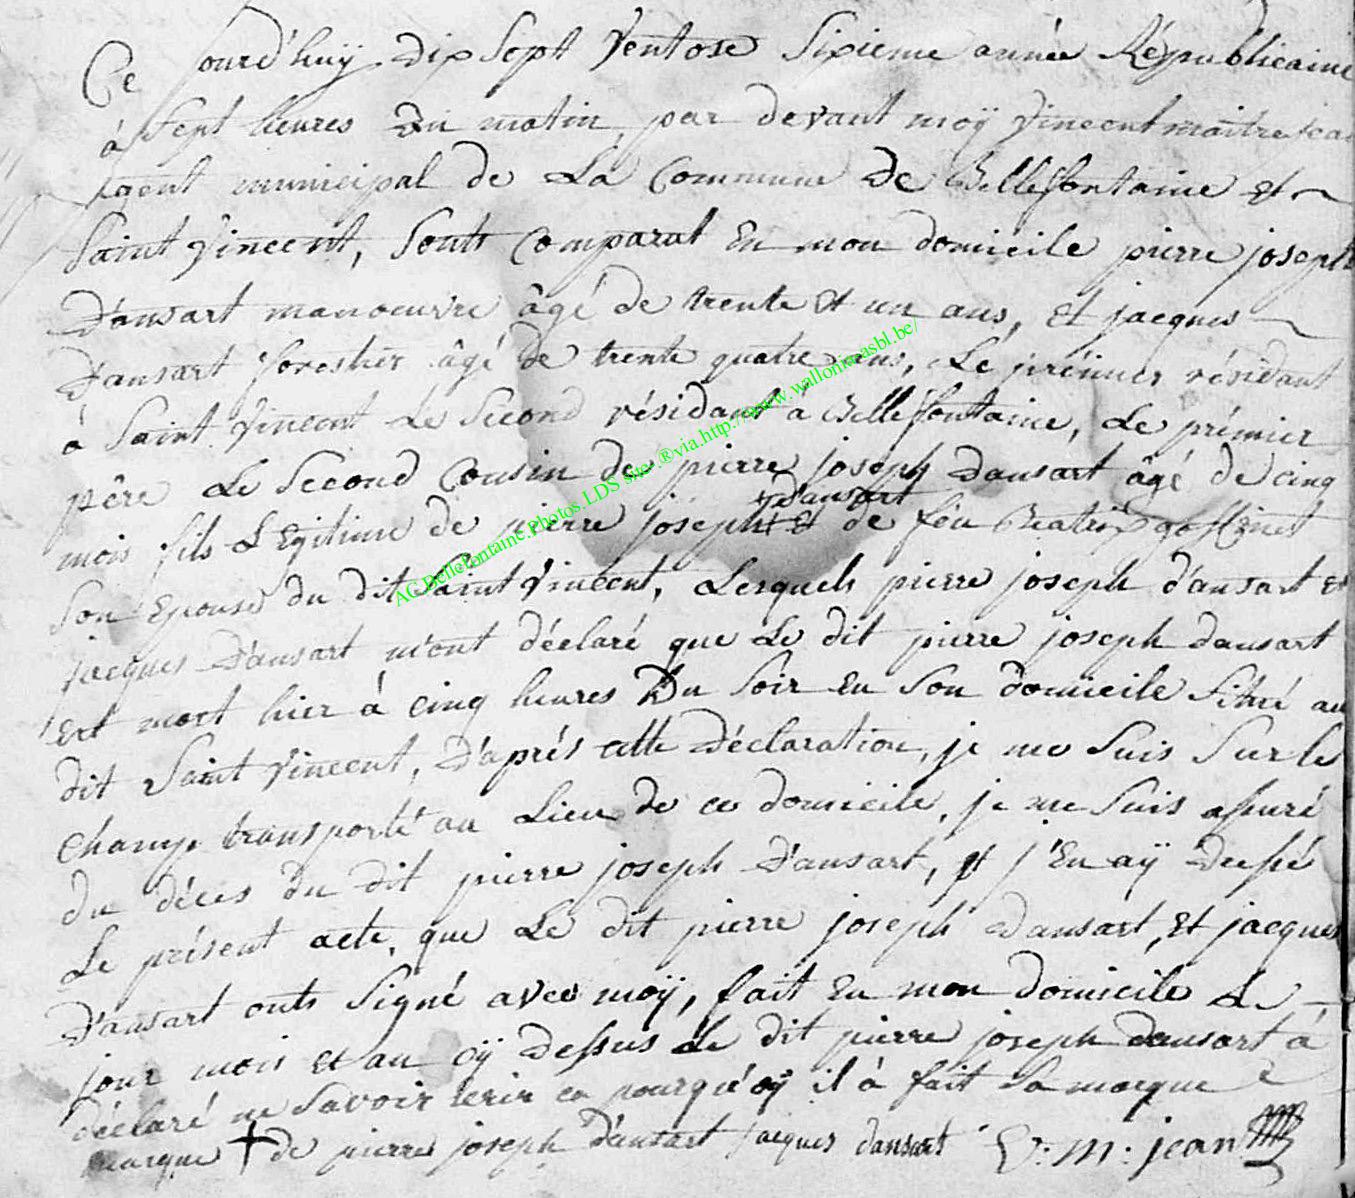 Ce jourd'huÿ dix sept Ventose sixieme année Républicaine
à sept heures du matin, par devant moÿ Vincent maitrejean
agent municipal de La Commune de Bellefontaine et
Saint Vincent, sonts comparut en mon domicile pierre joseph
D'ansart manoeuvre âgé de trente et un ans, et jacques
D'ansart forestier âgé de trente quatre ans, Le prémier résidant
à Saint Vincent Le Second résidant à Bellefontaine, Le prémier
pêre Le Second Cousin de pierre joseph Dansart âgé de cinq
D'ansart
mois fils Légitime de pierre joseph et de féu Beatrix gosSinet
Son Epouse du dit Saint Vincent, Lesquels pierre joseph d'ansart et
jacques D'ansart m'ont déclaré que Le dit pierre joseph dansart
est mort hier à cinq heures Du Soir en Son domicile Situé au
dit Saint Vincent, D'aprés cette Déclaration, je me Suis Sur le
champ transporté au Lieu de ce domicile, je me Suis assuré
du décès du dit pierre joseph D'ansart, et j'en aÿ Dressé
Le présent acte, que Le dit pierre joseph Dansart, et jacques
D'ansart onts Signé avec moÿ, fait en mon Domicile Le
jour mois et an cÿ Dessus Le dit pierre joseph dansart à
déclaré ne Savoir ecrir en pourquoÿ il à fait Sa marque
marque de pierre joseph D'ansart jacques dansart V: m: jean
AC.Bellefontaine.Photos.LDS site.®via.http://www.wallonimasbl.be/